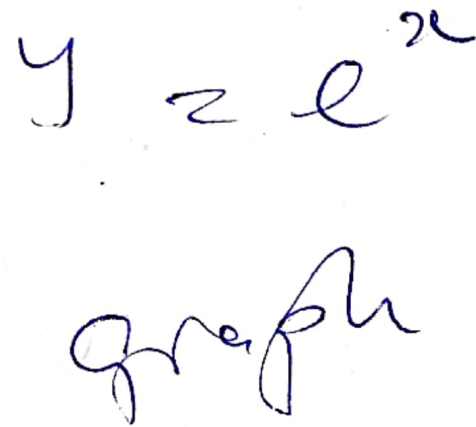 y = e^x
graph